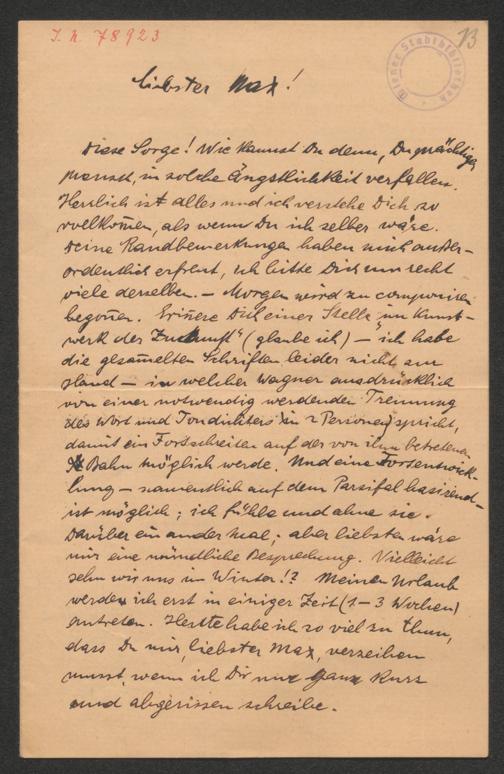 I. N. 78923
13
Wiener Stadtbibliothek
Liebster Max!
Diese Sorge! Wie kannst Du denn, Du prächtiger
Mensch, in solche Ängstlichkeit verfallen.
Herrlich ist alles und ich verstehe Dich so
vollkom̄en, als wenn Du ich selber wäre.
Deine Randbemerkungen haben mich außer-
ordentlich erfreut, ich bitte Dich um recht
viele derselben. — Morgen wird zu componieren
begon̄en. Erin̄ere Dich einer Stelle im „Kunst-
werk der Zukunft" (glaube ich) — ich habe
die gesam̄elten Schriften leider nicht zur
Hand — in welcher Wagner ausdrücklich
von einer notwendig werdenden Trennung
des Wort und Tondichters (in 2 Personen) spricht,
damit ein Fortschreiten auf der von ihm betretenen
Bahn möglich werde. Und eine Fortentwick-
lung — namentlich auf dem Parsifal basirend —
ist möglich; ich fühle und ahne sie.
Darüber ein ander Mal; aber liebsten wäre
mir eine mündliche Besprechung. Vielleicht
sehn wir uns im Winter!? Meinen Urlaub
werde ich erst in einiger Zeit (1 – 3 Wochen)
antreten. Heute habe ich so viel zu thun,
dass Du mir, liebster Max, verzeihen
musst, wenn ich Dir nur ganz kurz
und abgerissen schreibe.